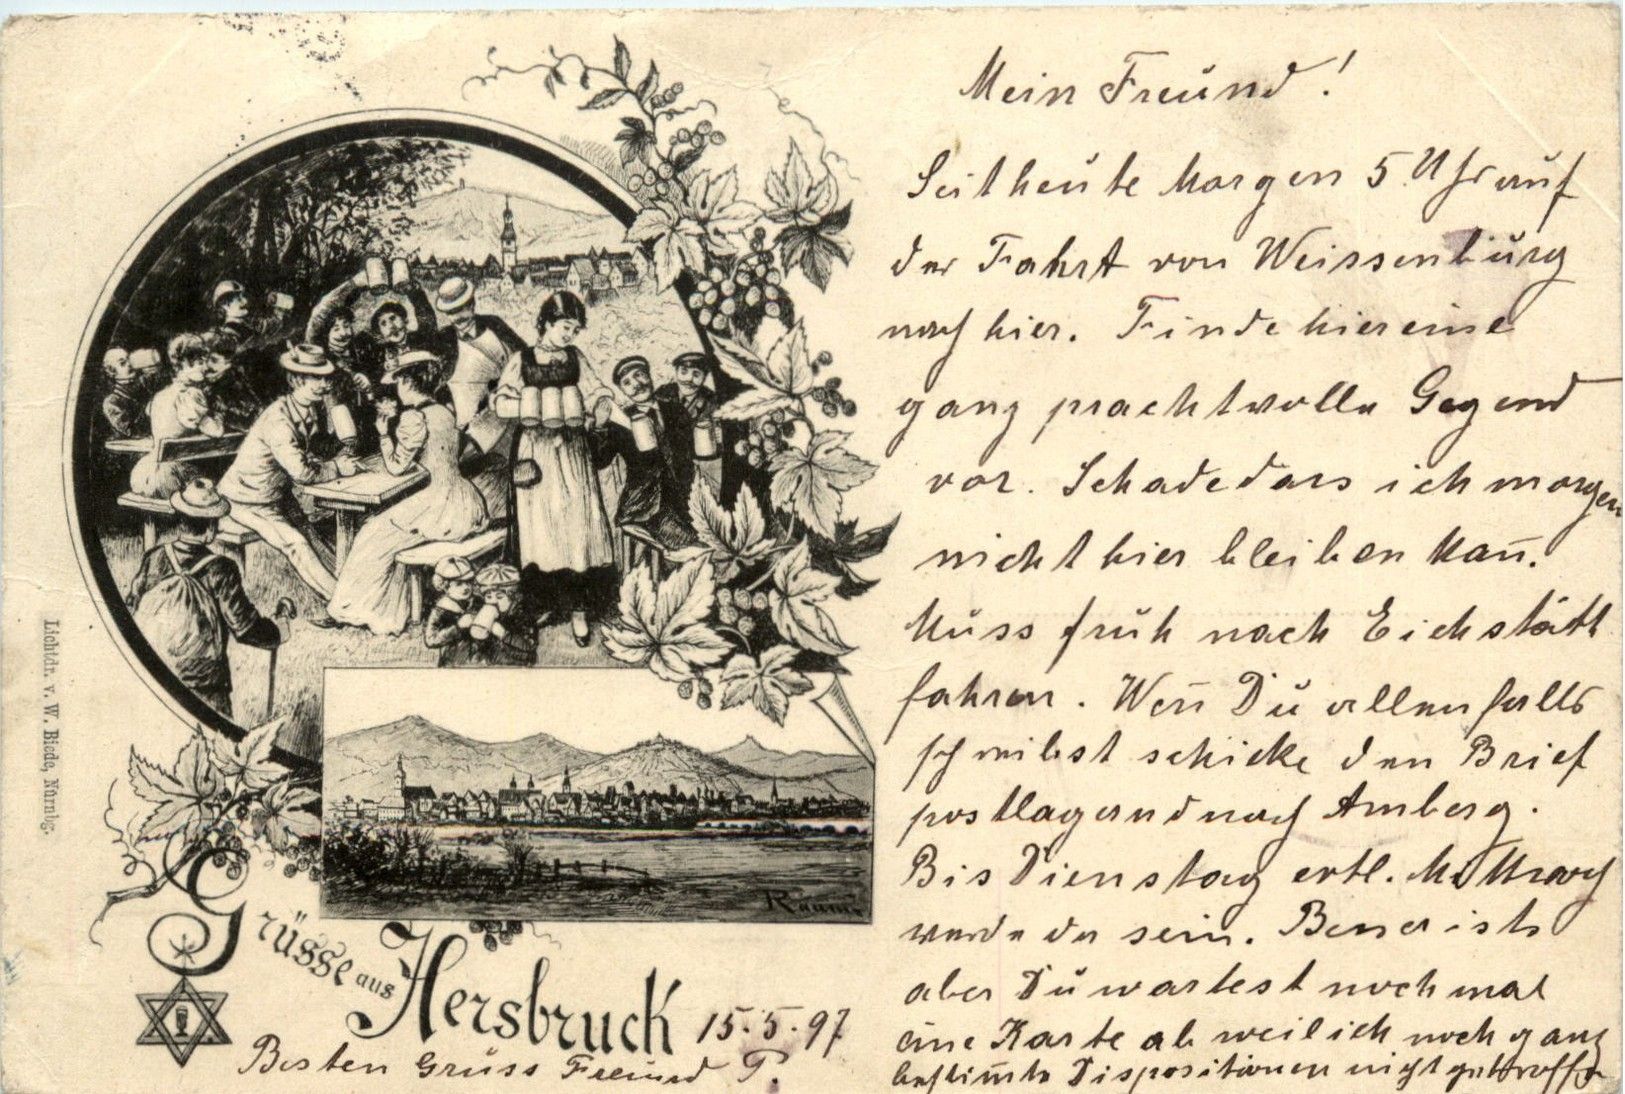 Mein Freund!
Seit heute Morgen 5 Uhr auf
der Fahrt von Weissenburg
nach hier. Finde hier eine
ganz prachtvolle Gegend
vor. Schade dass ich morgen
nicht hier bleiben kan̄.
Muss früh nach Eichstätt
fahren. Wen̄ Du allenfalls
schreibst schicke den Brief
postlagernd nach Amberg.
Bis Dienstag evtl. Mittwoch
werde da sein. Besser ists
aber Du wartest noch mal
eine Karte ab weil ich noch ganz
bestim̄te Dispositionen nicht getroffen
Lichtdr. v. W. Biede, Nürnbg.
Raum
Grüsse aus
Hersbruck
15.5.97
Besten Gruss Freund P.